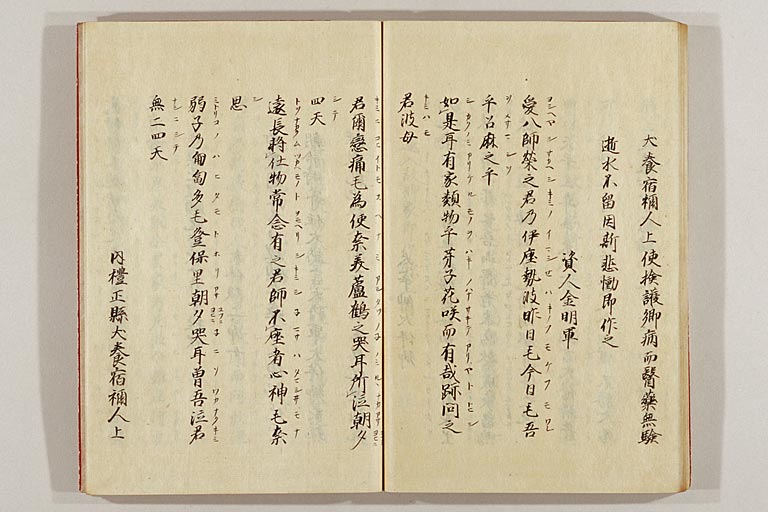 犬養宿禰人上使撿護卿病而醫藥無驗
逝水不留因斯悲慟即作之
資人金明軍
愛八師榮之君乃伊座勢波昨日毛今日毛吾
乎召麻之乎
如是耳有家類物乎芽子花咲而有哉跡問之
君波母
君爾戀痛毛為便奈美蘆鶴之哭耳所泣朝夕
四天
遠長將仕物常念有之君師不座者心神毛奈
思
弱子乃匍匐多毛登保里朝夕哭耳曽吾泣君
無二四天
内禮正縣犬養宿禰人上